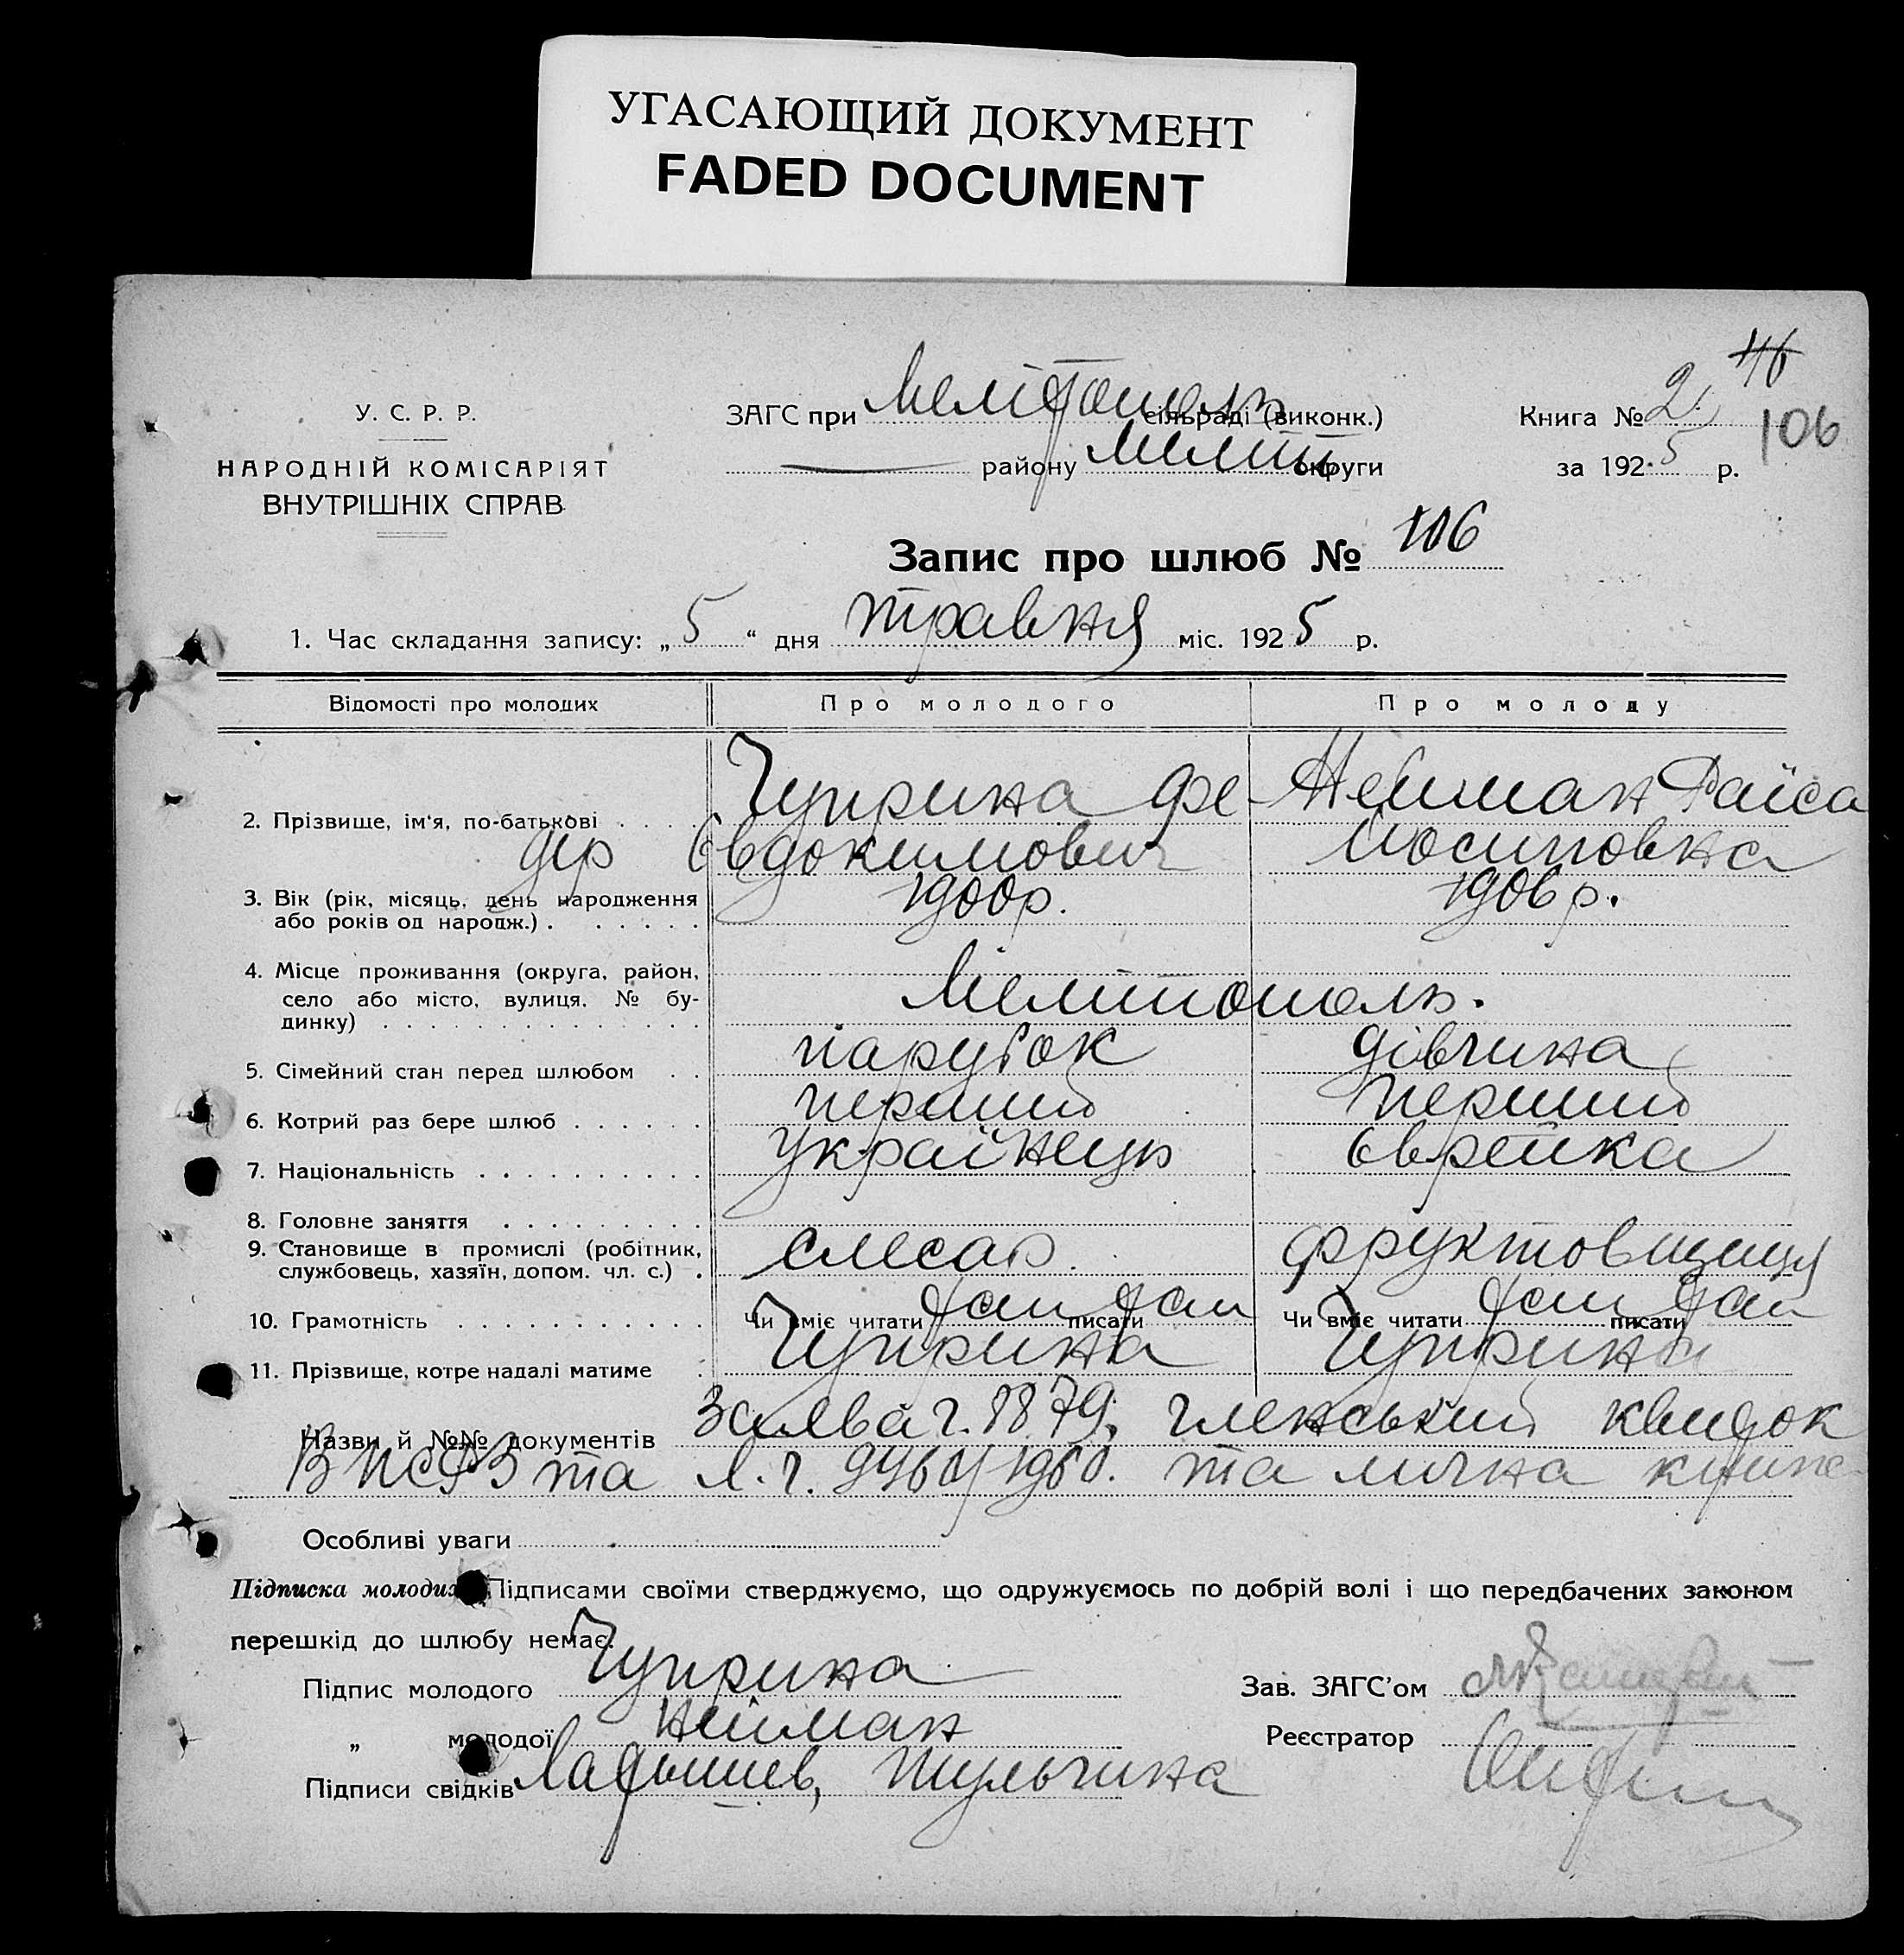 УГАСАЮЩИЙ ДОКУМЕНТ
FADED DOCUMENT
46
У. С. Р. Р.
ЗАГС при Мелітополь сільраді (виконк.)
Книга № 2
106
НАРОДНІЙ КОМІСАРІЯТ
ВНУТРІШНІХ СПРАВ
— району Меліт округи
за 192 5 р.
Запис про шлюб № 106
1. Час складання запису: „ 5 “ дня травня міс. 192 5 р.
Відомості про молодих
Про молодого
Про молоду
2. Прізвище, ім‘я, по-батькові
Чуприна Фе-
дір Євдокимович
Нейман Раїса
Йосиповна
3. Вік (рік, місяць, день народження
або років од народж.)
1900р.
1906р.
4. Місце проживання (округа, район,
село або місто, вулиця, № бу-
динку)
Мелітополь.
5. Сімейний стан перед шлюбом
парубок
дівчина
6. Котрий раз бере шлюб
перший
перший
7. Національність
українець
Єврейка
8. Головне заняття
9. Становище в промислі (робітник,
службовець, хазяїн, допом. чл. с.)
слесар
фруктовщиця
10. Грамотність
Чи вміє читати писати
Чи вміє читати писати
11. Прізвище, котре надалі матиме
Чуприна
Чуприна
Назви й №№ документів Заява ч. 1879, членський квиток
та лична
Особливі уваги
Підписка молодих Підписами своїми стверджуємо, що одружуємось по добрій волі і що передбачених законом
перешкід до шлюбу немає.
Підпис молодого Чуприна
Зав. ЗАГС’ом
„ молодої Нейман
Реєстратор
Підписи свідків Ладышев, Шульгина